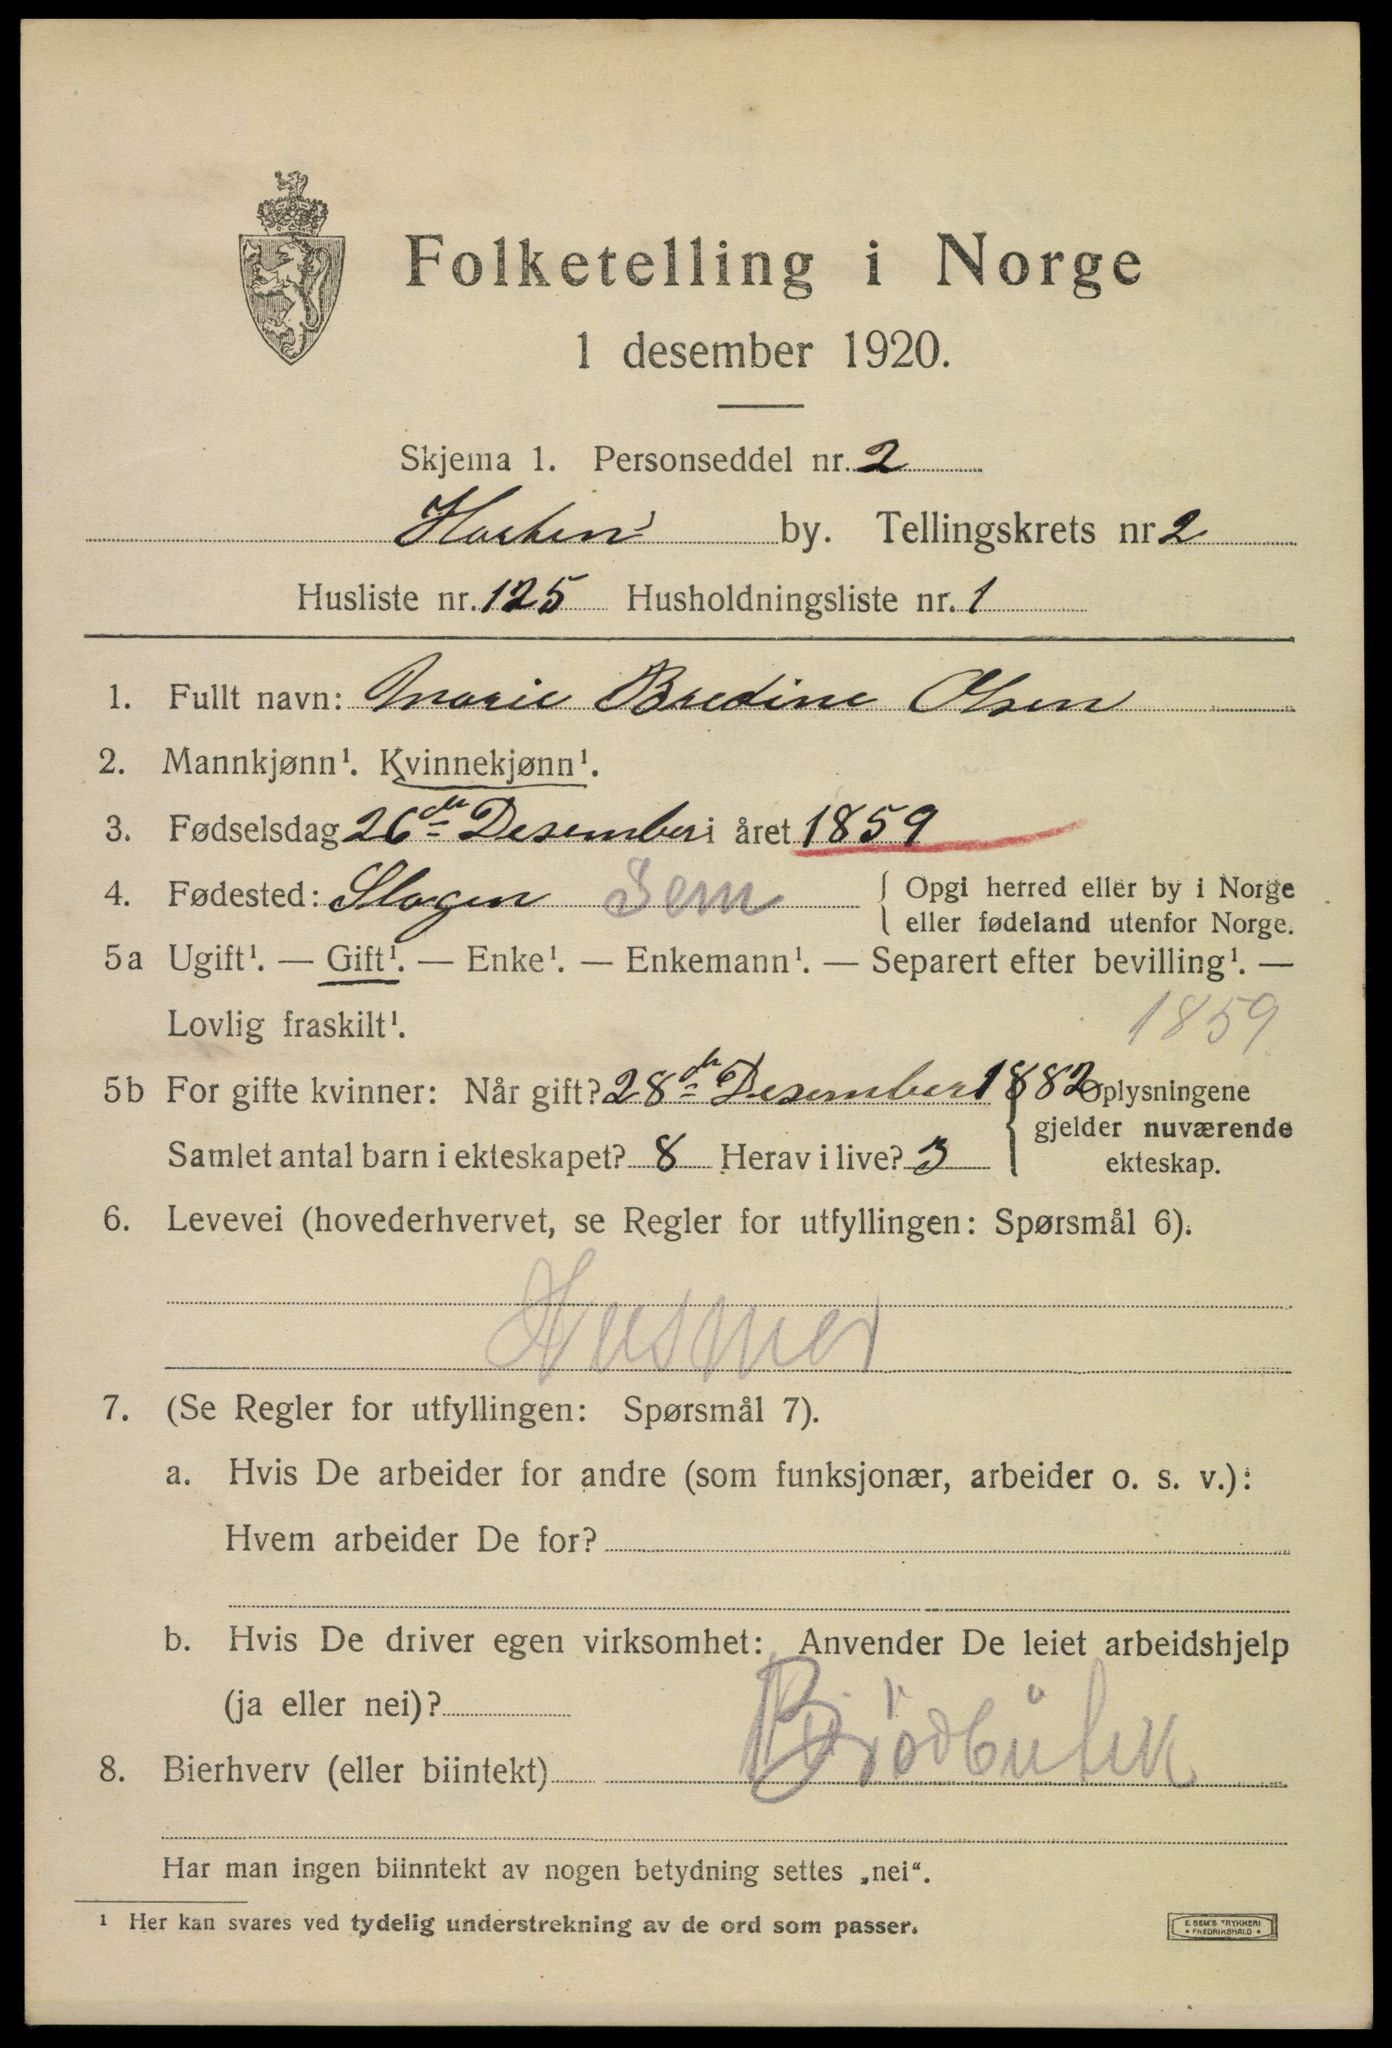 Folketelling i Norge
1 desember 1920.
Skjema 1. Personseddel nr. 2
Horten by. Tellingskrets nr 2
Husliste nr. 125 Husholdningsliste nr. 1
1. Fullt navn: Marie Bredine Olsen
2. Mannkjønn¹. Kvinnekjønn¹.
3. Fødselsdag 26de Desember i året 1859
4. Fødested: Slagen Sem { Opgi herred eller by i Norge
eller fødeland utenfor Norge.
5a Ugift¹. — Gift¹. — Enke¹. — Enkemann¹. — Separert efter bevilling¹. —
Lovlig fraskilt¹. 1859
5b For gifte kvinner: Når gift? 28de Desember 1882 { Oplysningene
gjelder nuværende
Samlet antal barn i ekteskapet? 8 Herav i live? 3
ekteskap.
6. Levevei (hovederhvervet, se Regler for utfyllingen: Spørsmål 6).
Husmor
7. (Se Regler for utfyllingen: Spørsmål 7).
a. Hvis De arbeider for andre (som funksjonær, arbeider o. s. v.):
Hvem arbeider De for?
b. Hvis De driver egen virksomhet: Anvender De leiet arbeidshjelp
(ja eller nei)?
8. Bierhverv (eller biintekt)
Har man ingen biinntekt av nogen betydning settes „nei“.
¹ Her kan svares ved tydelig understrekning av de ord som passer.
E. SEM'S TRYKKERI
• FREDRIKSHALD •